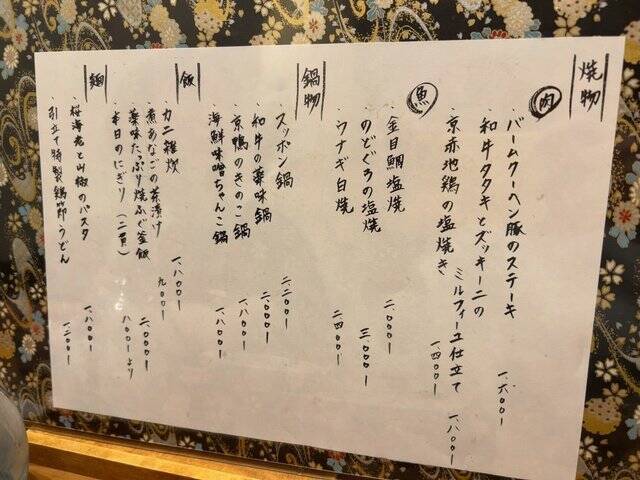 焼物
肉
・バームクーヘン豚のステーキ 一、六〇〇ー
・和牛タタキとズッキーニの
ミルフィーユ仕立て 一、八〇〇ー
・京赤地鶏の塩焼き 一、四〇〇ー
魚
・金目鯛塩焼 二、〇〇〇ー
・のどぐろの塩焼 三、〇〇〇ー
・ウナギ白焼 二、四〇〇ー
鍋物
・スッポン鍋 二、二〇〇ー
・和牛の薬味鍋 二、〇〇〇ー
・京鴨のきのこ鍋 一、八〇〇ー
・海鮮味噌ちゃんこ鍋 一、八〇〇ー
飯
・カニ雑炊 一、八〇〇ー
・煮あなごの茶漬け 九〇〇ー
・薬味たっぷり焼ふぐ釜飯 二、〇〇〇ー
・本日のにぎり(二貫) 八〇〇ーより
麺
・桜海老と山椒のパスタ 一、八〇〇ー
・引立て特製鍋 うどん 一、二〇〇ー